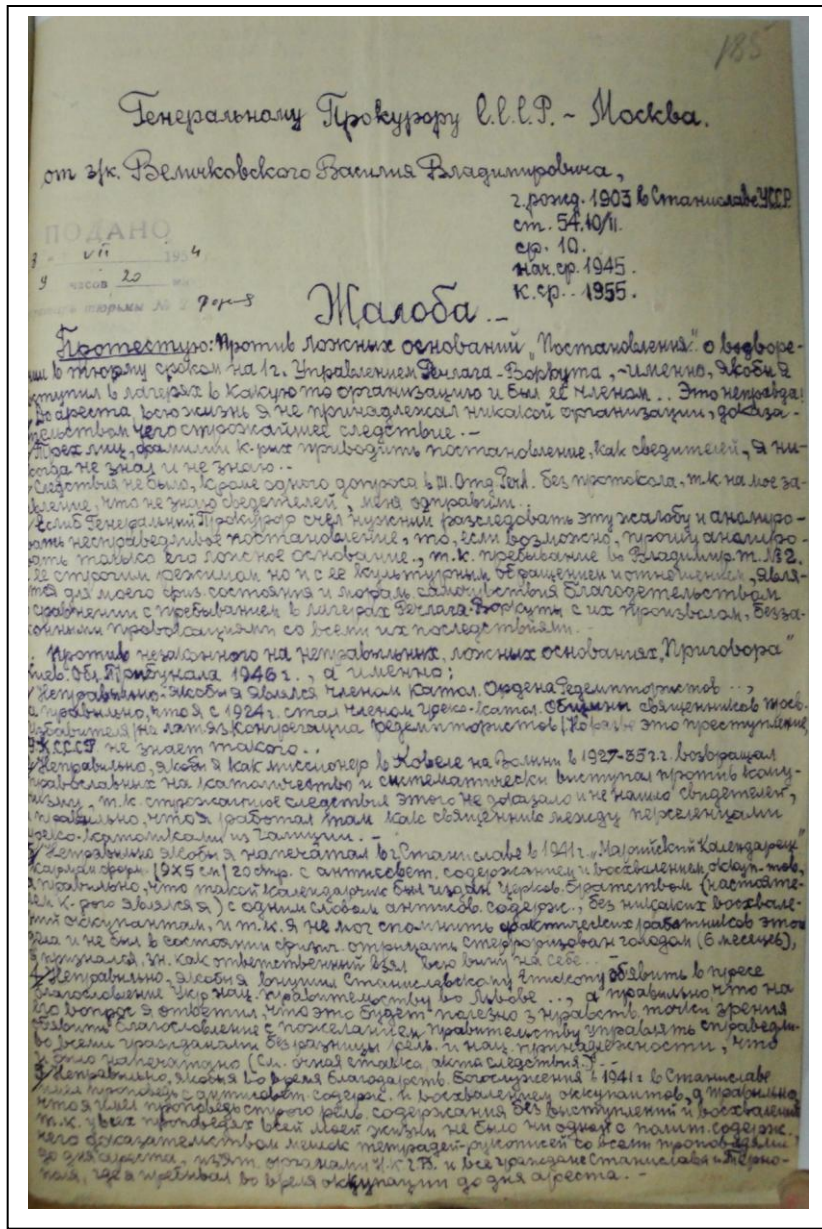 185
Генеральному Прокурору С.С.С.Р. ~ Москва.
от з/к. Величковского Василия Владимировича,
г. рожд. 1903 в Станиславе УССР
ст. 54.10/11.
ср. 10.
нач. ср. 1945.
к. ср. . 1955.
ПОДАНО
VII 1954
9 часов 20
тюрьмы № 2
Жалоба. –
Протестую: Против ложных оснований „Постановления" о водворе-
нии в тюрму сроком на 1г. Управлением Речлага-Воркута, – именно, якобы я
вступил в лагерях в какую то организацию и был её членом . . Это неправда!
До ареста всю жизнь я не принадлежал никакой организации, доказа-
тельством чего строжайшее следствие. –
Трех лиц, фамилии к-рых приводить постановление, как сведителей, я ни-
когда не знал и не знаю . .
Следствия не было, кроме одного допроса в III. Отд. Речл. без протокола, т.к на мое за-
явление, что не знаю сведителей, меня одправили. .
Еслиб Генеральний Прокурор счел нужним разследовать эту жалобу и анулиро-
вать несправедливое постановление, то, если возможно, прошу анулиро-
вать только его ложное основание., т.к. пребывание в Владимир. т. №2.
с ее строгим режимом но и с ее культурным обращением и отношением, явля-
тся для моего физ. состояния и мораль. самочувствия благодетельством
в сравнении с пребыванием в лагерах Речлага-Воркуты с их произволом, безза-
конными провокациями со всеми их последствиями. –
Против незаконного на неправильных, ложных основаниях, „Приговора"
Киев. Обл. Трибунала 1946 г., а именно;
Неправильно якобы я являлся членом катол. Ордена Редемптористов . . ,
а правильно, что я с 1924г. стал членом греко-катол. общины священников
Избавителя на латяз. Конгрегация редемптористов Но разве это преступление,
УКСССР не знает такого . .
Неправильно, якобы я как миссионер в Ковеле на Волыни в 1927-35 г.г. возвращал
православных на католичество и систематически виступал против кому-
низму, т.к. строжайшое следствия этого не доказало и не нашло свидетелей,
а правильно, что я работал там как священник между переселенцами
греко-католиками из Галиции. –
3) Неправильно якобы я напечатал в г. Станиславе в 1941г. „Марийский Календарець"
карман. форм. (9х5 см) 20 стр. с антисовет. содержанием и восхвалением оккуп-тов,
а правильно, что такой календарчик был издан церков. братством (настояте-
лем к-рого являлся я) с одним словом антисов. содерж., без никаких восхвале-
ний оккупантам, и т.к. я не мог спомнить фактических работников этого
дела и не был в состоянии физич. отрицать стерроризован голодом (6 месяцев),
я признался, зн. как ответственный взял всю вину на себе . .
4) Неправильно, якобы я внушил Станиславскому Епископу обявить в пресе
благословение Укр. нац. правительству во Львове . . , а правильно, что на
его вопрос я ответил, что это будет полезно з нравств. точки зрения
обявити благословение с пожеланием правительству управлять справедли-
во всеми гражданами без разницы рель. и нац. принадлежности, что
и было напечатано (См. очная ставка, акта следствия).
5) Неправильно, якобы я во время благодарств. богослужения в 1941г. в Станиславе
имел проповедь с антисовет. содерж. и восхвалением оккупантов, а правильно,
что я имел проповедь строго рель. содержания без виступлений и восхвалений
т.к. у всех проповедях всей моей жизни не было ни одной с полит. содерж.
чего доказательством мешок тетрадей-рукописей со всеми проповедями
до дня ареста, изят. органами и все граждане Станислава и Терно-
поля, где я пребивал во время оккупации до дня ареста. –